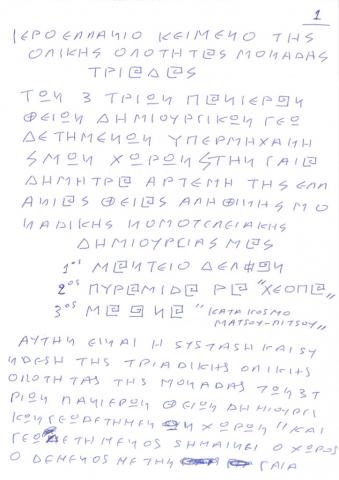 1
ΙΕΡΟΕΛΛΑΝΙΟ ΚΕΙΜΕΝΟ ΤΗΣ
ΟΛΙΚΗΣ ΟΛΟΤΗΤΑΣ ΜΟΝΑΔΑΣ
ΤΡΙΑΔΑΣ
ΤΩΝ 3 ΤΡΙΩΝ ΠΑΝΙΕΡΩΝ
ΘΕΙΩΝ ΔΗΜΙΟΥΡΓΙΚΩΝ ΓΕΩ
ΔΕΤΗΜΕΝΩΝ ΥΠΕΡΜΗΧΑΝΗ
ΣΜΩΝ ΧΩΡΩΝ ΣΤΗΝ ΓΑΙΑ
ΔΗΜΗΤΡΑ ΑΡΤΕΜΗ ΤΗΣ ΕΛΛ
ΑΝΙΑΣ ΘΕΙΑΣ ΑΛΗΘΙΝΗΣ ΜΟ
ΝΑΔΙΚΗΣ ΝΟΜΟΤΕΛΕΙΑΚΗΣ
ΔΗΜΙΟΥΡΓΙΑΣ ΜΑΣ
1ος ΜΑΝΤΕΙΟ ΔΕΛΦΩΝ
2ος ΠΥΡΑΜΙΔΑ ΡΑ "ΧΕΟΠΑ"
3ος ΜΑΩΝΑ "ΚΑΤΑ ΚΟΣΜΟ
ΜΑΤΣΟΥ-ΠΙΤΣΟΥ"
ΑΥΤΗ ΕΙΝΑΙ Η SΥSΤΑSΗ ΚΑΙ SΥ
ΝΔΕSΗ ΤΗΣ ΤΡΙΑΔΙΚΗΣ ΟΛΙΚΗΣ
ΟΛΟΤΗΤΑΣ ΤΗΣ ΜΟΝΑΔΑΣ ΤΩΝ 3 Τ
ΡΙΩΝ ΠΑΝΙΕΡΩΝ ΘΕΙΩΝ ΔΗΜΙΟΥΡΓΙ
ΚΩΝ ΓΕΩΔΕΤΗΜΕΝΩΝ ΧΩΡΩΝ "ΚΑΙ
ΓΕΩΔΕΤΗΜΕΝΟS SΗΜΑΙΝΕΙ Ο ΧΩΡΟS
Ο ΔΕΜΕΝΟS ΜΕ ΤΗΝ ΓΑΙΑ